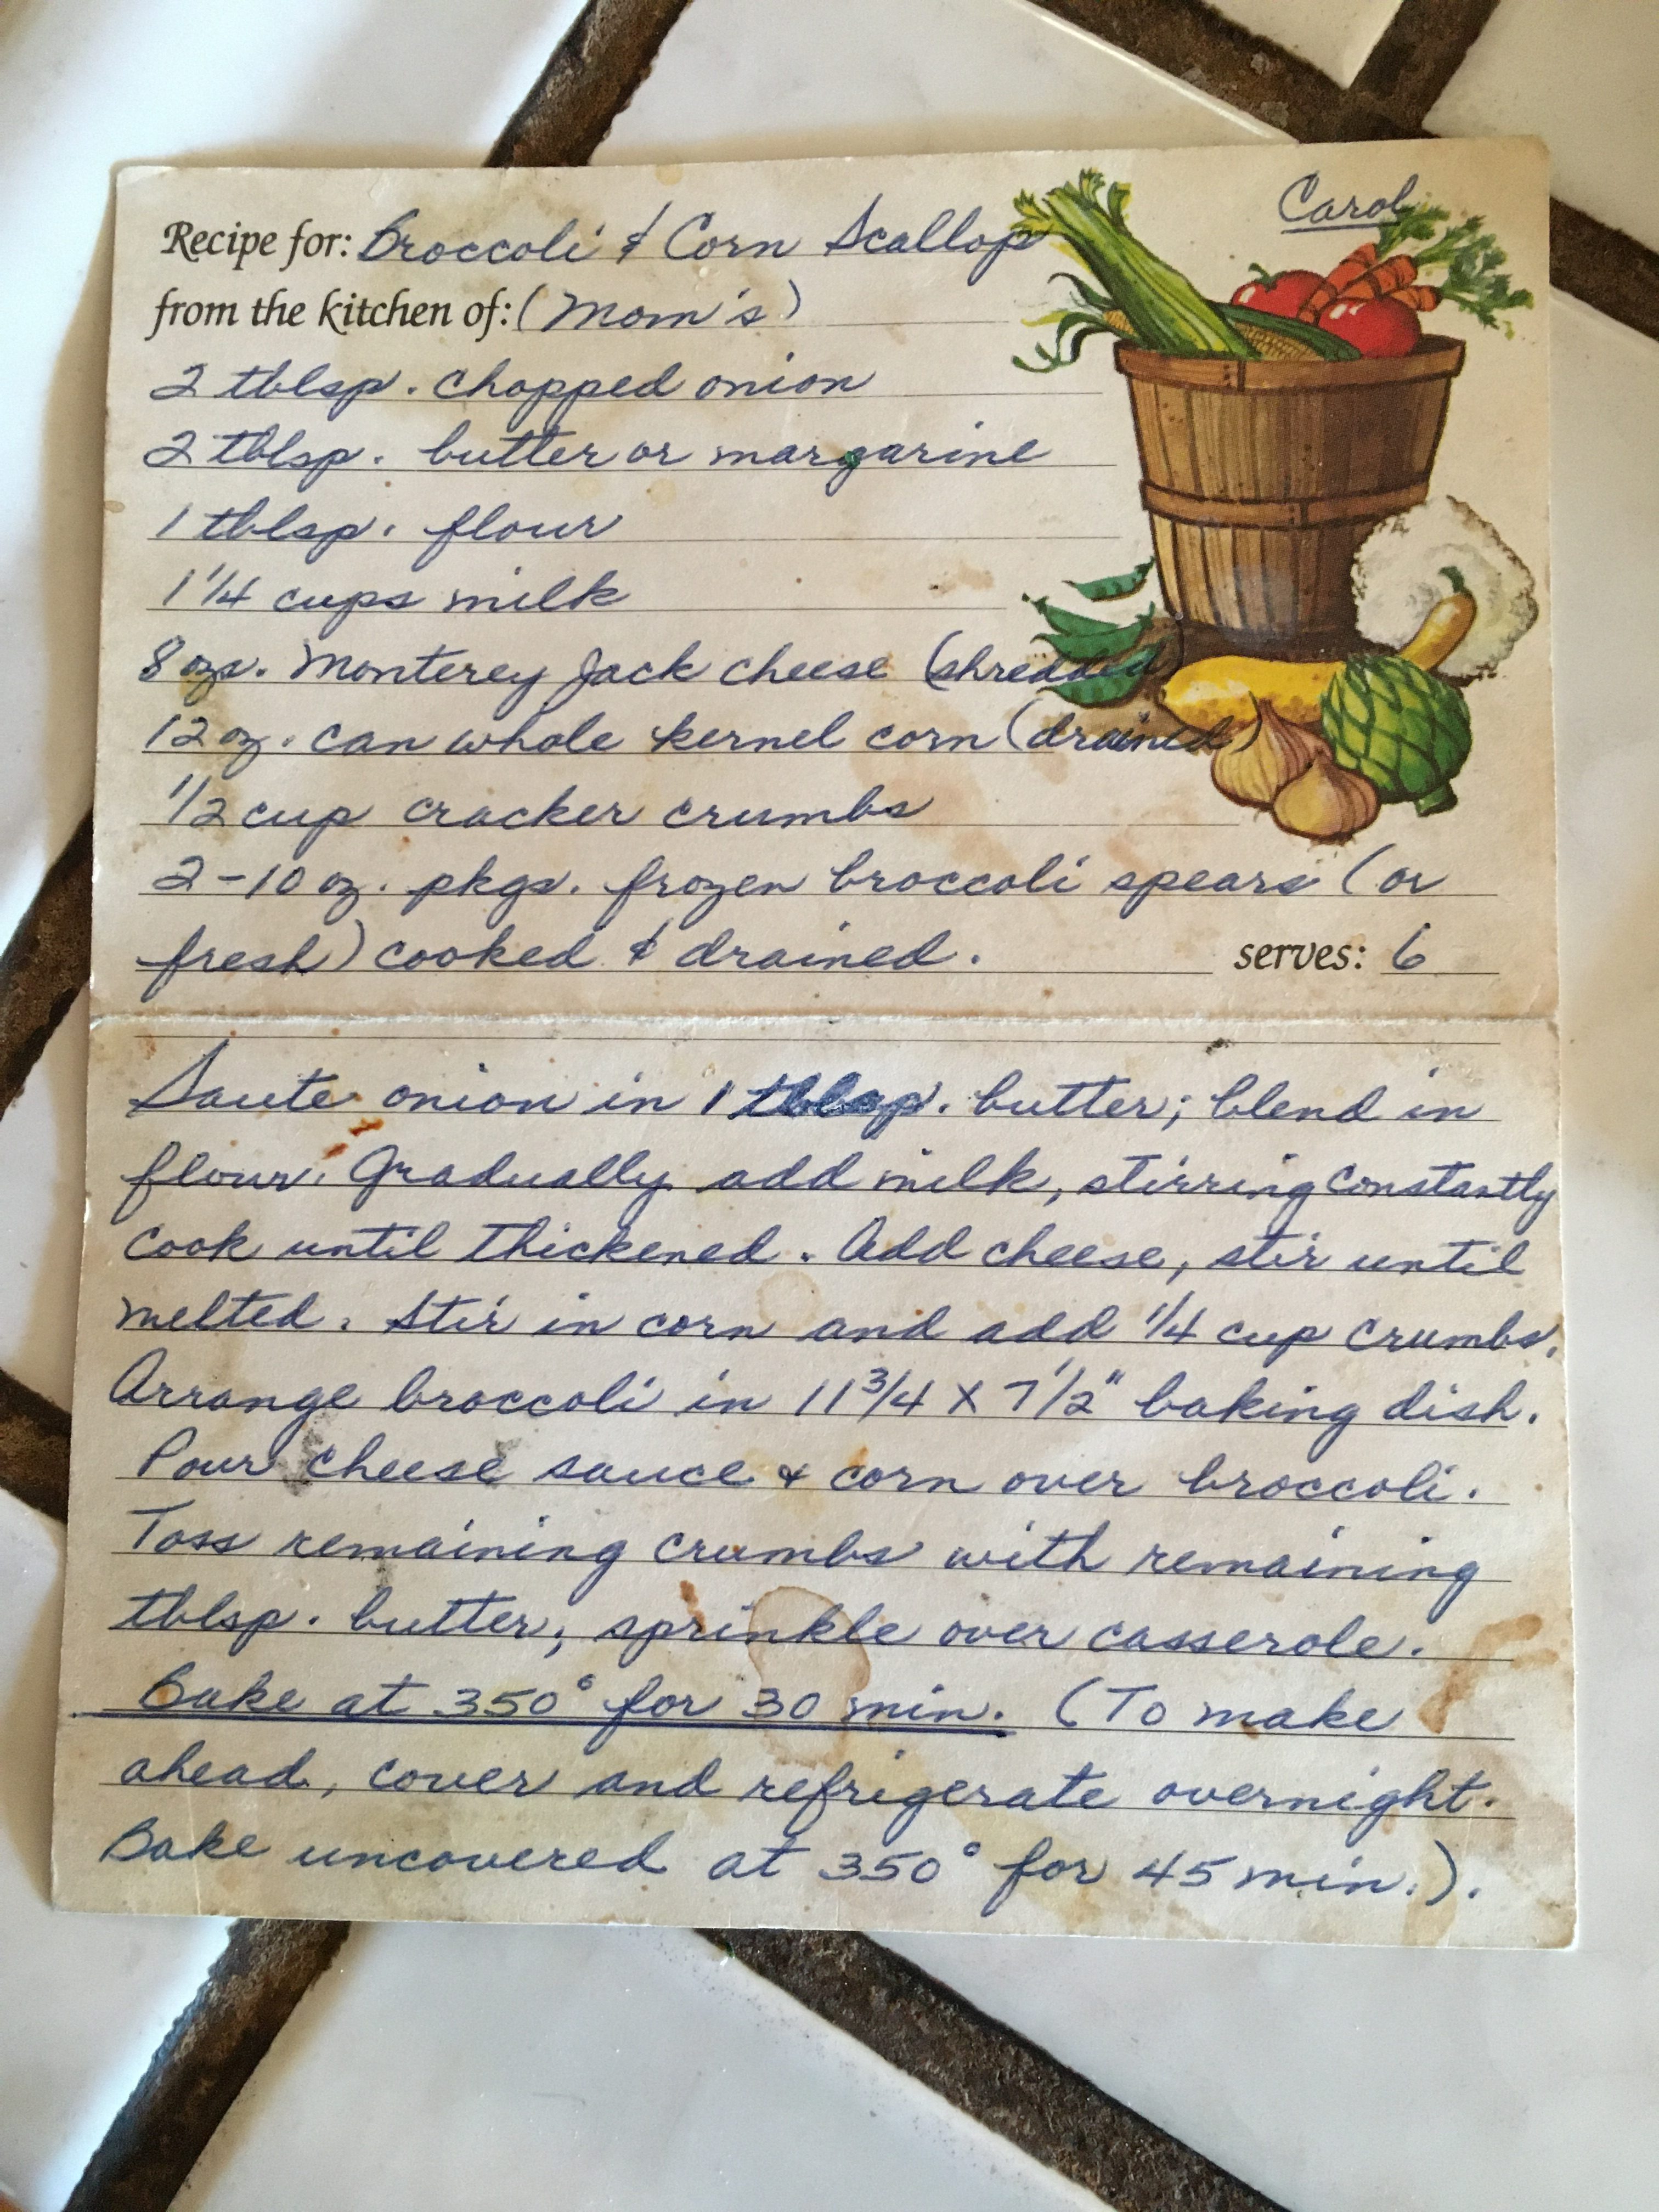 Carol
Recipe for: Broccoli & Corn Scallop
from the kitchen of: (Mom's)
2 tblsp. chopped onion
2 tblsp. butter or margarine
1 tblsp. flour
1 1/4 cups milk
8 ozs. Monterey Jack cheese (shredded)
12 oz. can whole kernel corn (drained)
1/2 cup cracker crumbs
2-10 oz. pkgs. frozen broccoli spears (or
fresh) cooked & drained.
serves: 6
Saute onion in 1 tblsp. butter; blend in
flour. Gradually add milk, stirring constantly
cook until thickened. Add cheese, stir until
melted. Stir in corn and add 1/4 cup crumbs.
Arrange broccoli in 11 3/4 X 7 1/2" baking dish.
Pour cheese sauce & corn over broccoli.
Toss remaining crumbs with remaining
tblsp. butter; sprinkle over casserole.
Bake at 350° for 30 min. (To make
ahead, cover and refrigerate overnight.
Bake uncovered at 350° for 45 min.).